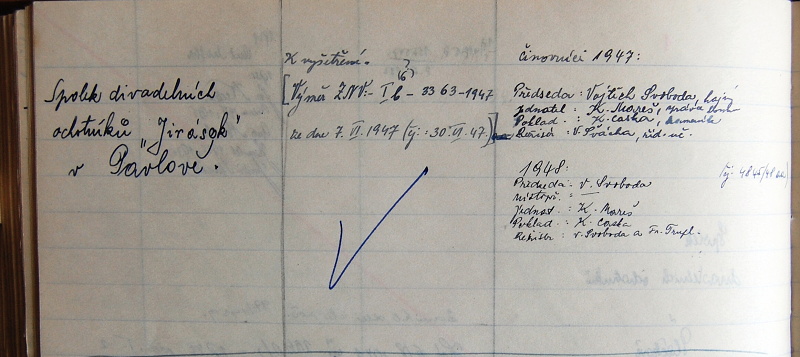 Spolek divadelních
ochotníků "Jirásek"
v Pavlově.
K vyšetření.
?
(6)
[Výměr ZNV:- I b - 3363-1947
ze dne 7. VI. 1947 (čj: 30. VI. 47.)]
Činovníci 1947:
Předseda: Vojtěch Svoboda, hajný
jednatel: K. Mareš, správce
Poklad.: K. Časka,
Režisér: V. Švácha, říd. uč.
1948:
(čj: 4845/48
Předseda: V. Svoboda
místopř: —
jednat.: K. Mareš
Poklad: K. Časka
Režisér: V. Svoboda a Fr. Trufl.